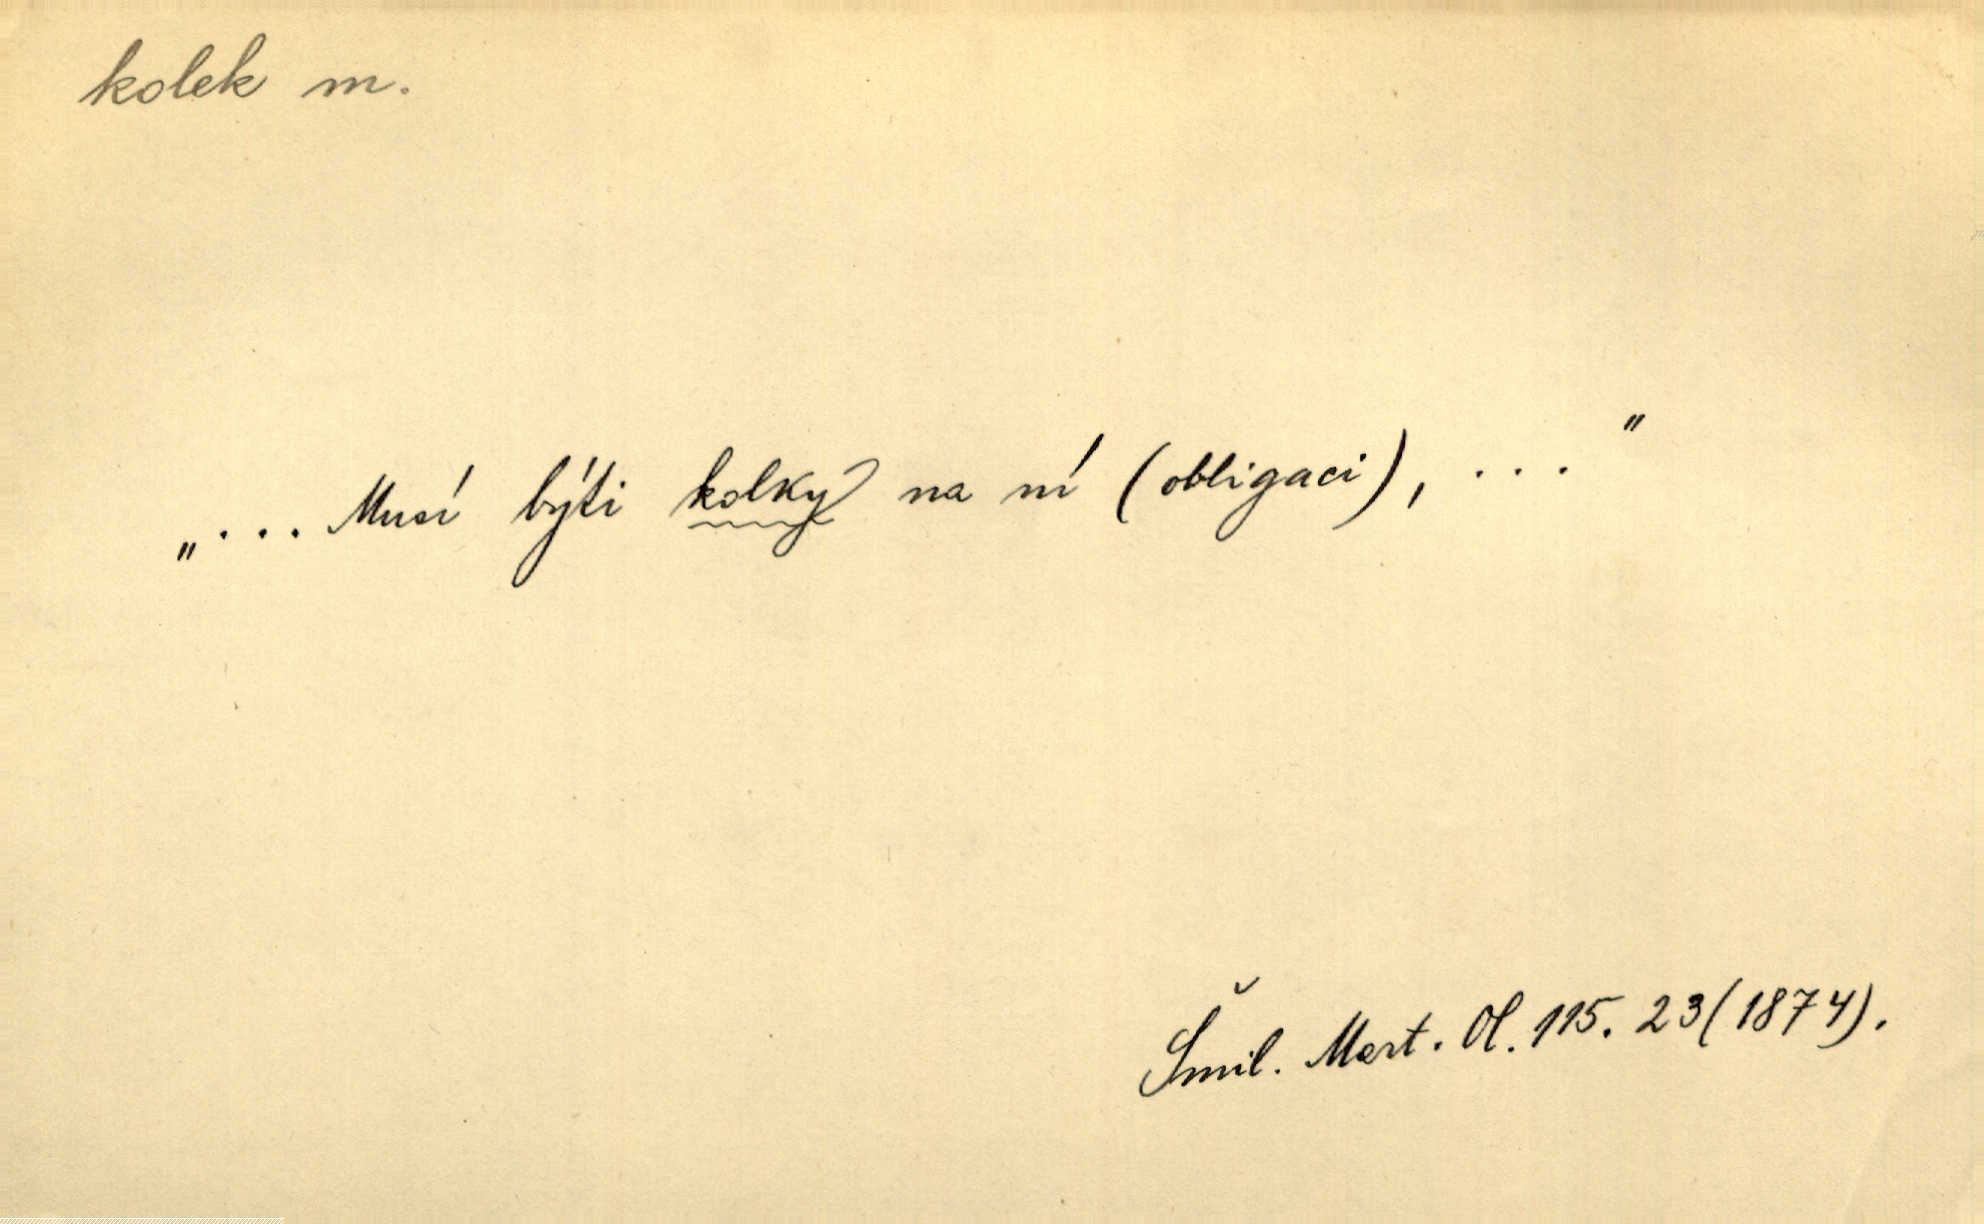 kolek m.
„... Musí býti kolky na ní (obligaci), ..."
Šmil. Mart. Ol. 115. 23 (1874).